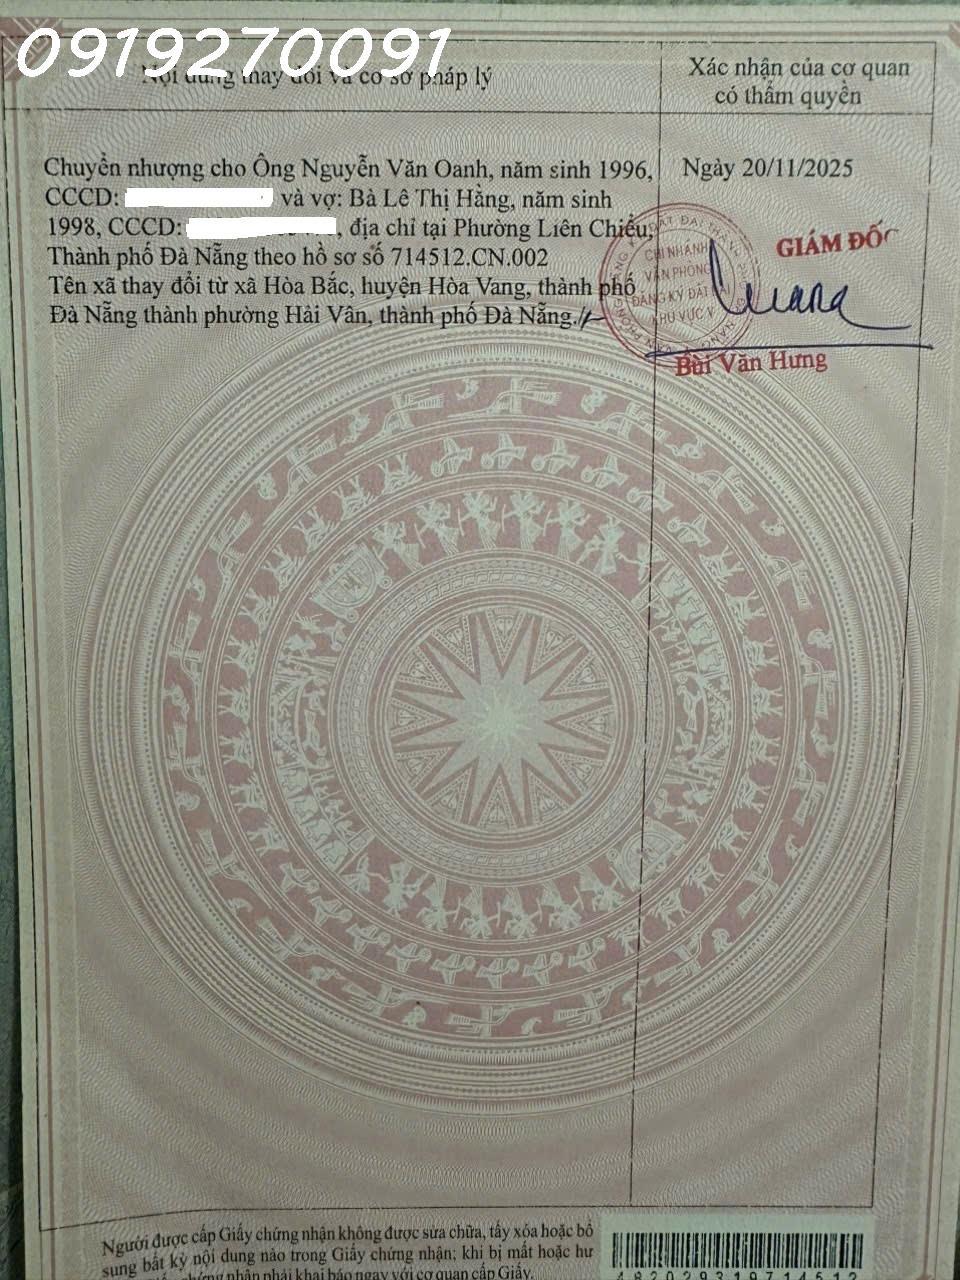 0919270091
Nội dung thay đổi và cơ sở pháp lý
Xác nhận của cơ quan
có thẩm quyền
Chuyển nhượng cho Ông Nguyễn Văn Oanh, năm sinh 1996,
CCCD: và vợ: Bà Lê Thị Hằng, năm sinh
1998, CCCD: , địa chỉ tại Phường Liên Chiểu,
Thành phố Đà Nẵng theo hồ sơ số 714512.CN.002
Tên xã thay đổi từ xã Hòa Bắc, huyện Hòa Vang, thành phố
Đà Nẵng thành phường Hải Vân, thành phố Đà Nẵng./
Ngày 20/11/2025
GIÁM ĐỐC
CHI NHÁNH
VĂN PHÒNG
ĐĂNG KÝ ĐẤT ĐAI
KHU VỰC V
Bùi Văn Hưng
Người được cấp Giấy chứng nhận không được sửa chữa, tẩy xóa hoặc bổ
sung bất kỳ nội dung nào trong Giấy chứng nhận; khi bị mất hoặc hư
chứng nhận phải khai báo ngay với cơ quan cấp Giấy.